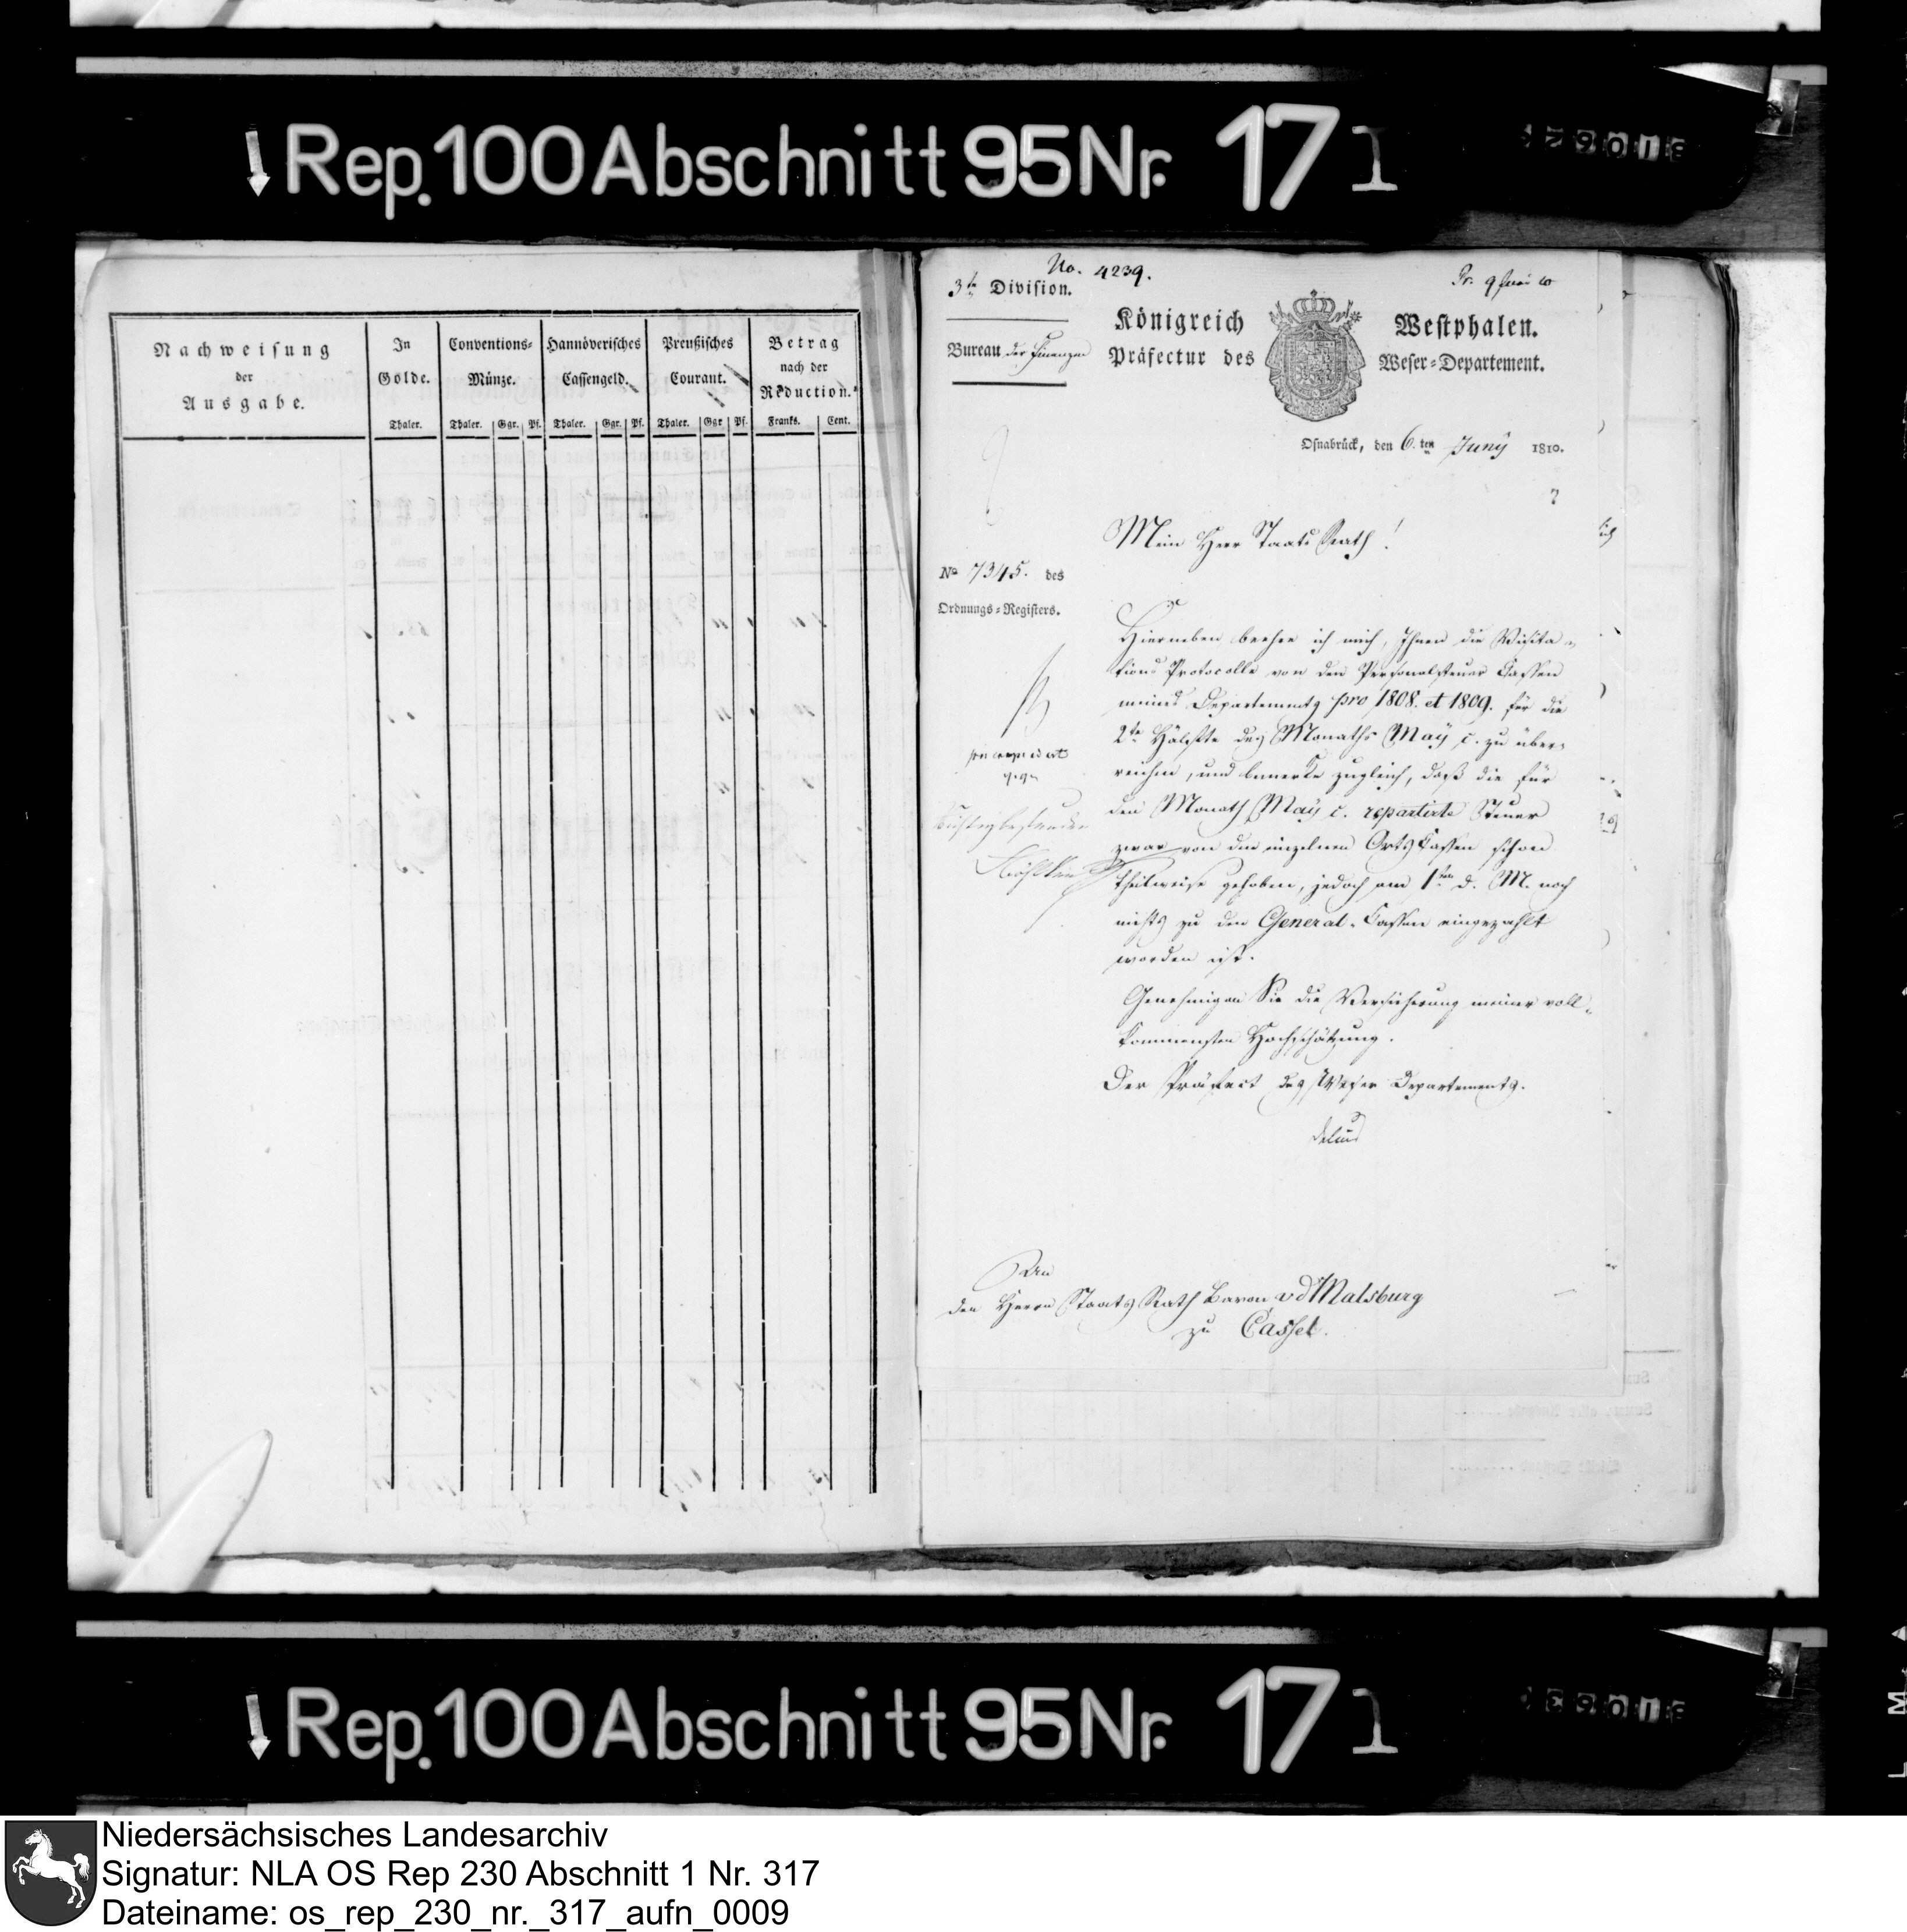 Rep. 100 Abschnitt 95 Nr. 171
Nachweisung
der
Ausgabe.
In
Golde.
Conventions-
Münze.
Hannöverisches
Cassengeld.
Preußisches
Courant.
Betrag
nach der
Reduction.
Thaler.
Thaler.
Ggr.
Pf.
Thaler.
Ggr.
Pf.
Thaler.
Ggr
Pf.
Franks.
Cent.
No. 4239.
3te Division.
Bureau der Finanzen
Pr. 9 Juni 10
Königreich Westphalen.
Präfectur des Weser-Departement.
Osnabrück, den 6.ten Juny 1810.
Mein Herr Staats Rath!
No 7345. des
Ordnungs-Registers.
Hierneben beehre ich mich, Ihnen die Visita-
tions Protocolle von den Personalsteuer Cassen
meines Departements pro 1808. et 1809. für die
2te Hälfte des Monaths May c. zu über-
reichen, und bemerke zugleich, daß die für
den Monath May c. repartirte Steuer
zwar von den einzelnen Orts Cassen schon
theilweise gehoben, jedoch am 1ten d. M. noch
nichts zu den General-Cassen eingezahlt
worden ist.
Genehmigen Sie die Versicherung meiner voll-
kommensten Hochschätzung.
Der Präfect des Weser Departements.
Delius
An
den Herrn Staats Rath Baron v d Malsburg
zu Cassel.
Rep. 100 Abschnitt 95 Nr. 171
Niedersächsisches Landesarchiv
Signatur: NLA OS Rep 230 Abschnitt 1 Nr. 317
Dateiname: os_rep_230_nr._317_aufn_0009